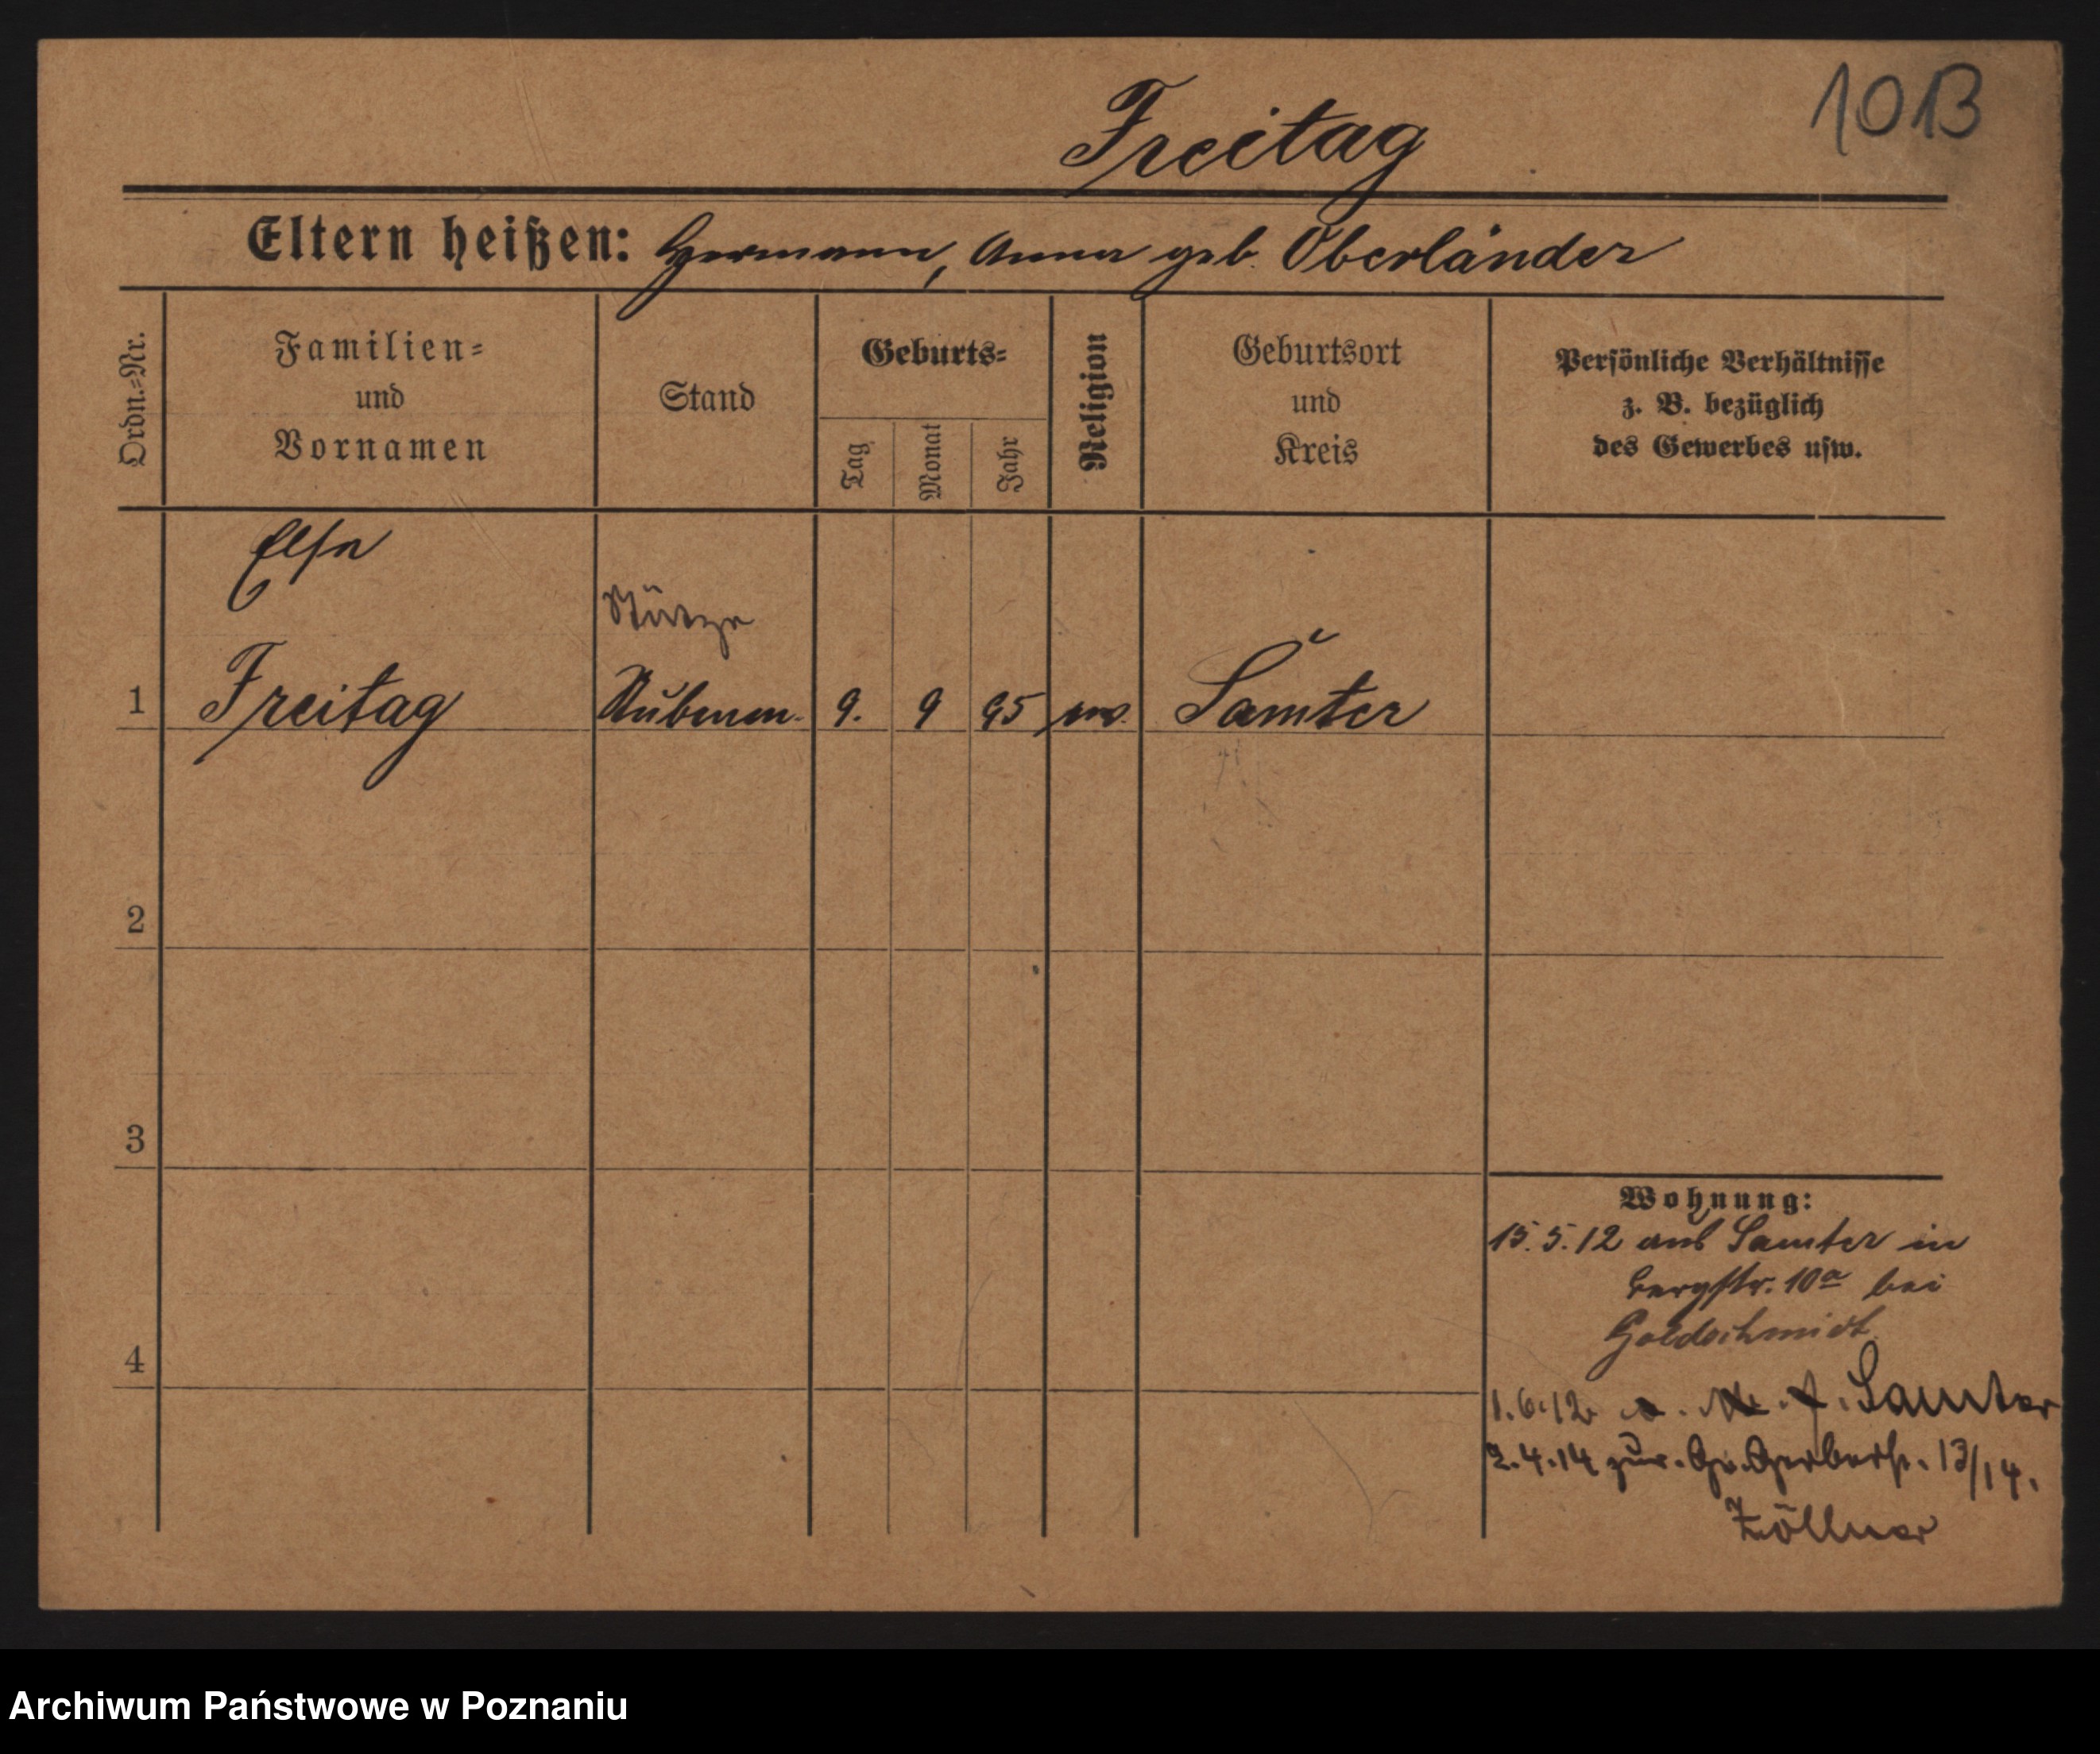 Freitag
10 B
Eltern heißen: Hermann, Anna geb. Oberländer
Ordn.-Nr.
Familien- und Vornamen
Stand
Geburts-
Tag
Monat
Jahr
Religion
Geburtsort und Kreis
Persönliche Verhältnisse
z. B. bezüglich
des Gewerbes usw.
Else
Stütze
1 Freitag Stubenm. 9. 9 95 ev. Samter
2
3
4
Wohnung:
15.5.12 aus Samter in
Bergstr. 10a bei
Goldschmidt
1.6.12 n. Samter
2.4.14 zur. Gr. Gerberstr. 13/14.
Zöllner
Archiwum Państwowe w Poznaniu